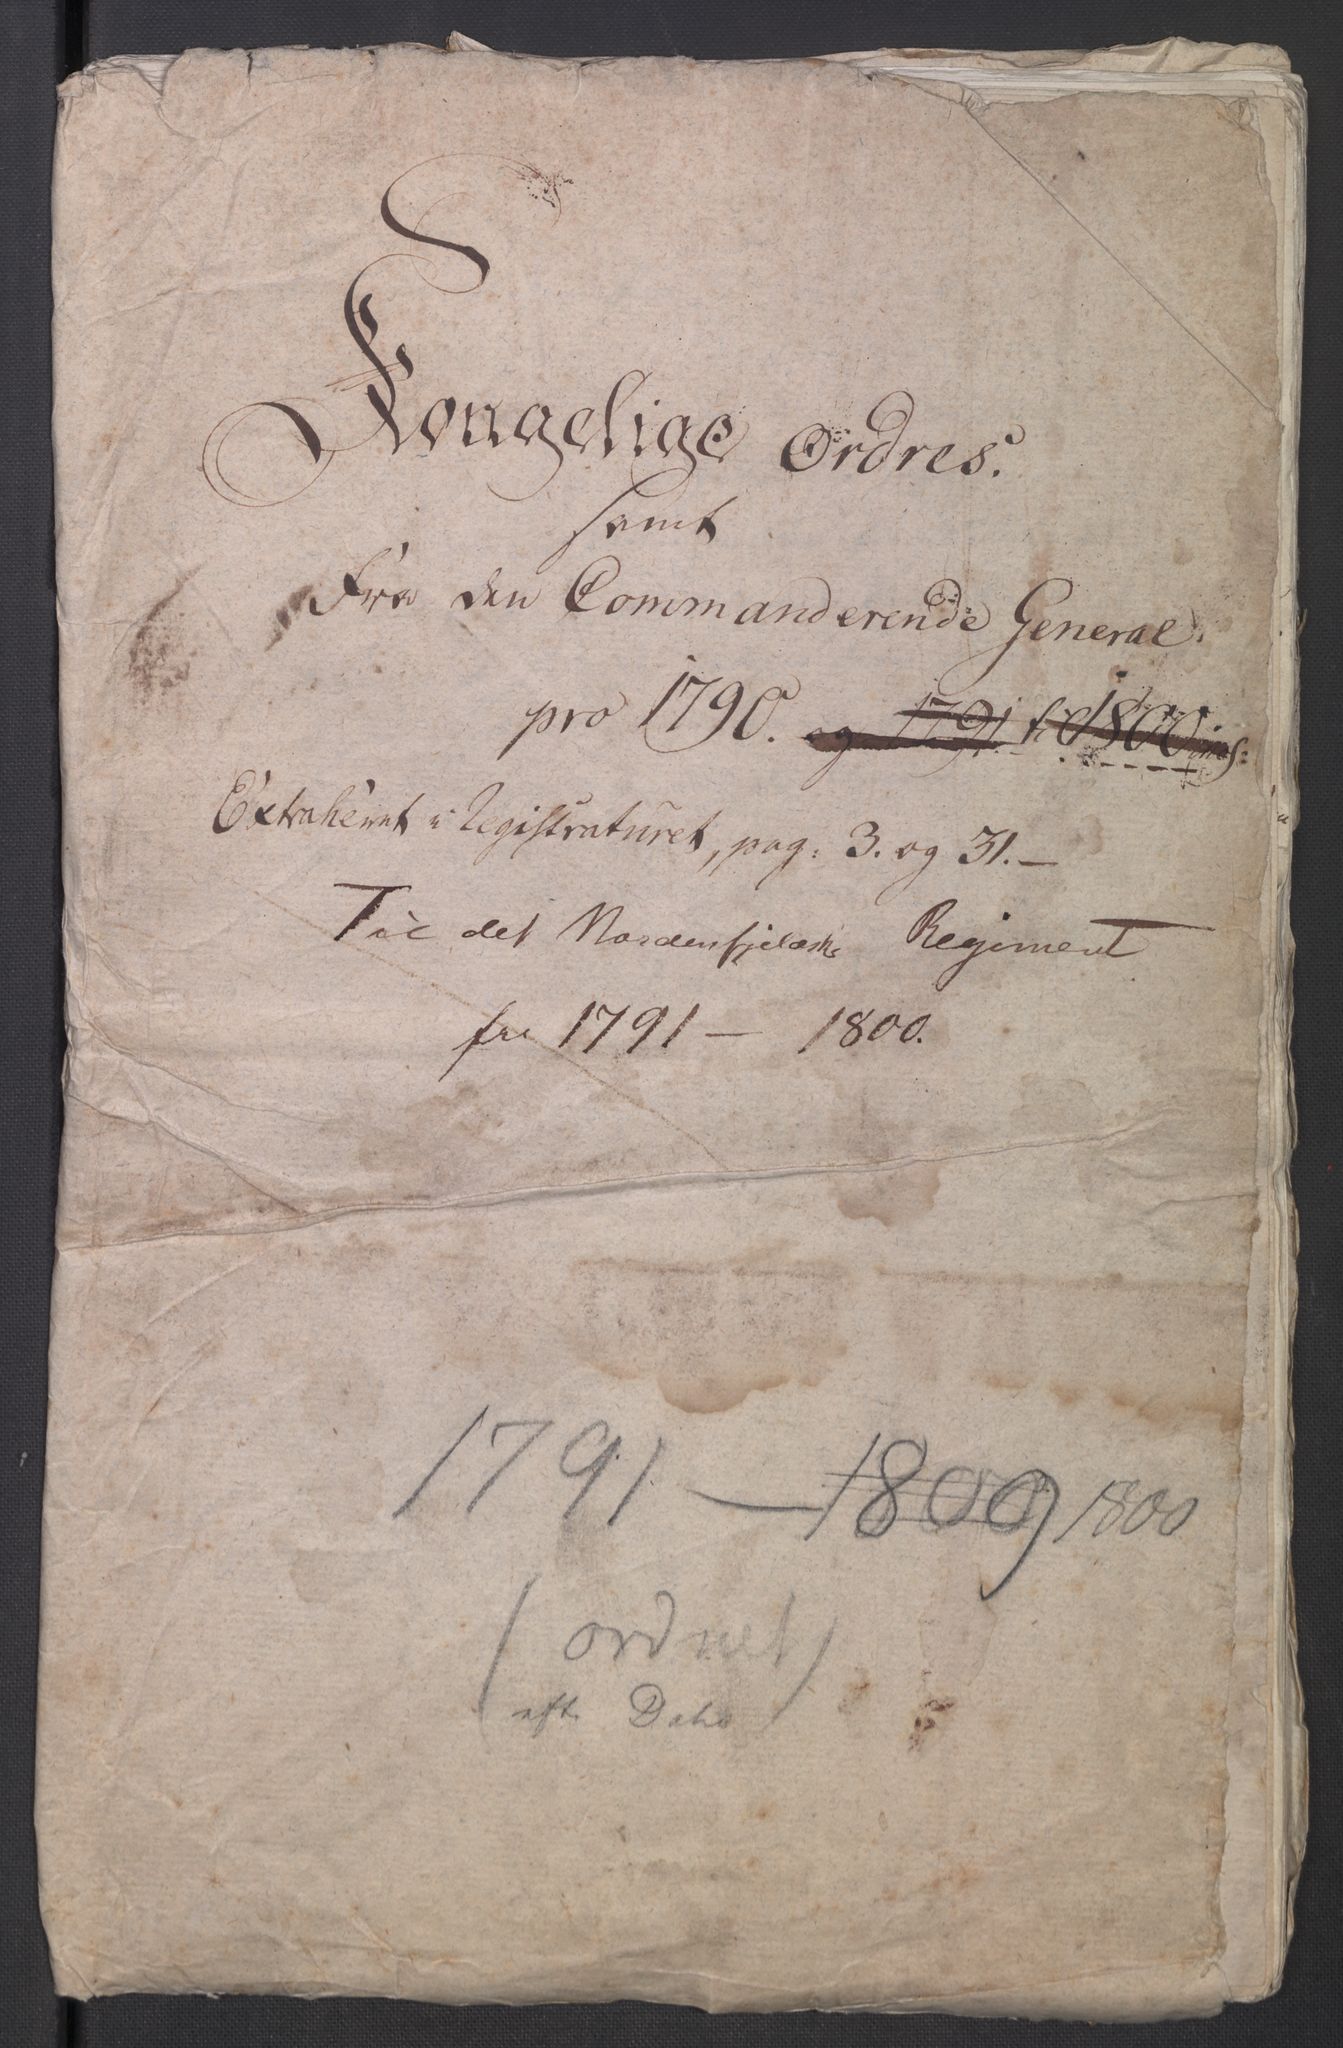 Kongelige Ordres.
samt
Fra den Commanderende General.
pro 1790. og 1791 til 1800
Extraheret i Registraturet, pag: 3. og 31.—
Til det Nordenfjeldske Regiment
fra 1791 — 1800.
1791 — 1809 1800
(ordnet
eft. Dato)